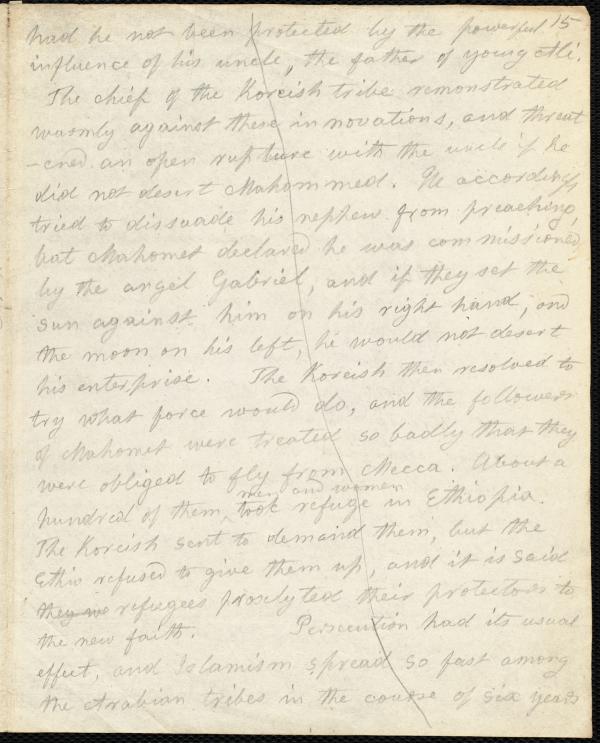 15
had he not been protected by the powerful
influence of his uncle, the father of young Ali.
The chief of the Koreish tribe remonstrated
warmly against these innovations, and threat
-ened an open rupture with the uncle if he
did not desert Mahommed. He accordingly
tried to dissuade his nephew from preaching,
but Mahomet declared he was commissioned
by the angel Gabriel, and if they set the
sun against him on his right hand, and
the moon on his left, he would not desert
his enterprise. The Koreish then resolved to
try what force would do, and the followers
of Mahomet were treated so badly that they
were obliged to fly from Mecca. About a
men and women
hundred of them, took refuge in Ethiopia.
The Koreish sent to demand them, but the
Ethio refused to give them up, and it is said
they we refugees proselyted their protectors to
the new faith. Persecution had its usual
effect, and Islamism spread so fast among
the Arabian tribes in the course of six years